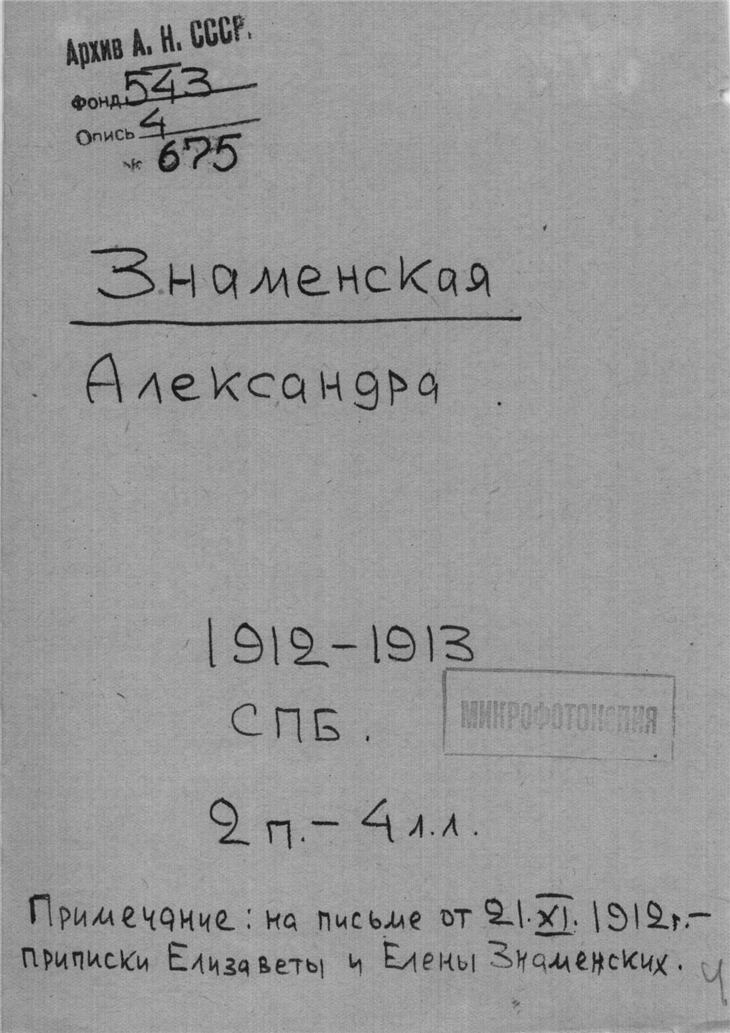 Архив А. Н. СССР.
Фонд 543
Опись 4
№ 675
Знаменская
Александра
1912–1913
СПБ.
МИКРОФОТОКОПИЯ
2 п.– 4 л.л.
Примечание: на письме от 21.XI.1912г.–
приписки Елизаветы и Елены Знаменских.